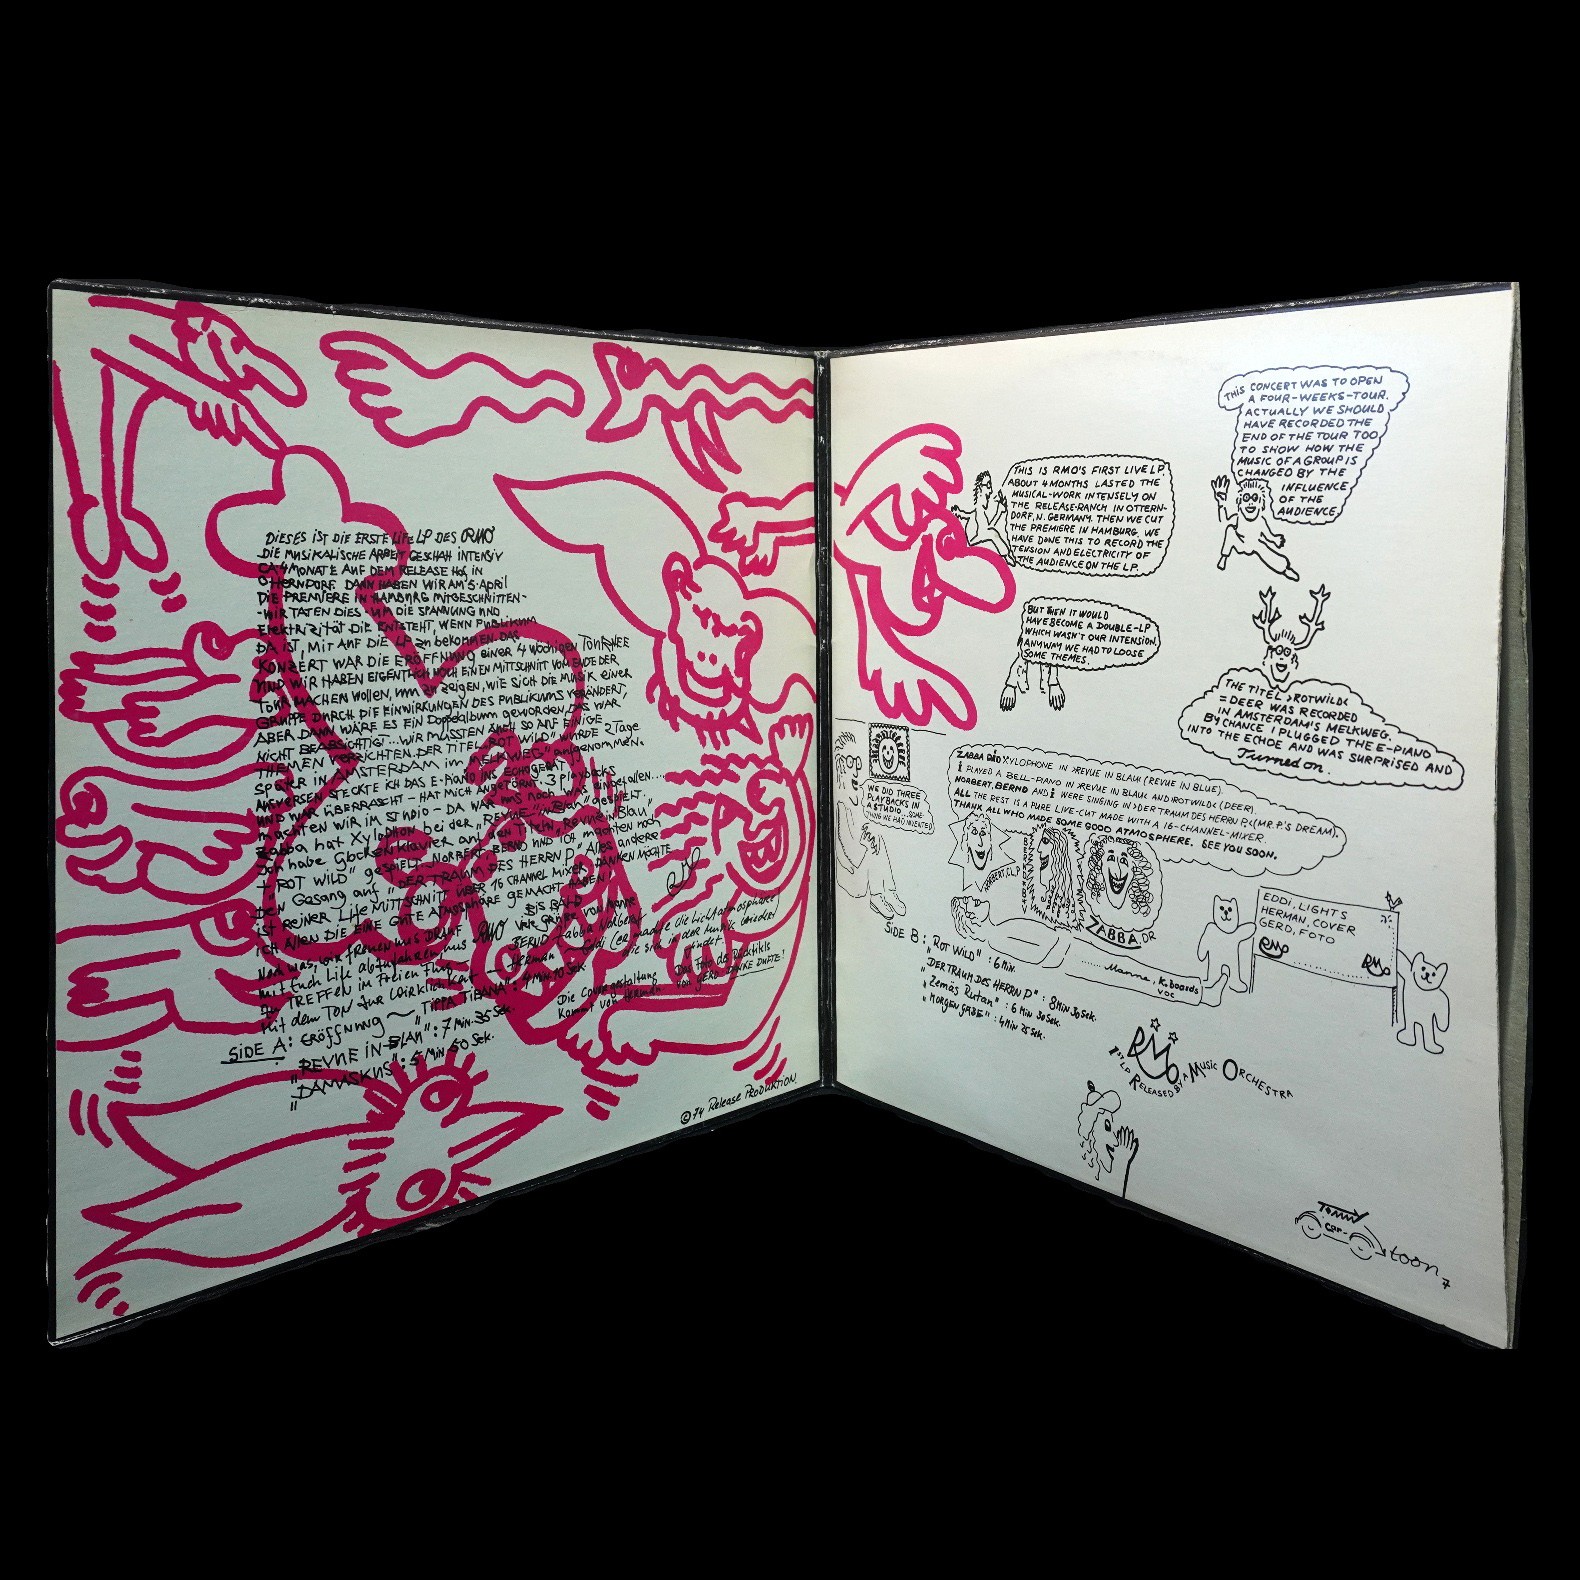 DIESES IST DIE ERSTE LIFE LP DES RMO
DIE MUSIKALISCHE ARBEIT GESCHAH INTENSIV
CA 4 MONATE AUF DEM RELEASE HOF IN
OTTERNDORF. DANN HABEN WIR AM 5. April
DIE PREMIERE IN HAMBURG MITGESCHNITTEN-
-WIR TATEN DIES - UM DIE SPANNUNG UND
Elektrizität DIE ENTSTEHT, WENN PUBLIKUM
DA IST, MIT AUF DIE LP zu bekommen. DAS
KONZERT WAR DIE ERÖFFNUNG einer 4 wöchigen TOURNEE
UND WIR HABEN EIGENTLICH NOCH EINEN MITSCHNITT VOM ENDE DER
TOUR MACHEN WOLLEN, um zu zeigen, WIE SICH DIE MUSIK einer
GRUPPE DURCH DIE EINWIRKUNGEN DES PUBLIKUMS VERÄNDERT,
ABER DANN WÄRE ES EIN Doppelalbum geworden, DAS WAR
NICHT BEABSICHTIGT... WIR MUSSTEN AUCH SO AUF EINIGE
THEMEN VERZICHTEN. DER TITEL "ROT WILD" WURDE 2 Tage
SPÄTER IN AMSTERDAM im "MELKWEG" aufgenommen.
STECKTE ICH DAS E-PIANO INS ECHOGERÄT
UND WAR ÜBERRASCHT - HAT MICH ANGETÖRNT. 3 playbacks
machten wir im STUDIO - DA WAR uns noch was eingefallen...
Zabba hat Xylophon bei der "REVUE in Blau" gespielt.
Ich habe Glockenklavier auf den Titeln "Revue in Blau"
+ "ROT WILD" gespielt - NORBERT, BERND UND ICH machten noch
Den Gesang auf "DER TRAUM DES HERRN P" Alles andere
ist reiner Life MITTSCHNITT ÜBER 16 CHANNEL MIXER DANKEN MÖCHTE
ICH ALLEN DIE EINE GUTE ATMOSPHÄRE GEMACHT HABEN!
BIS BALD RMO
Noch was, wir freuen uns DRAUF
mit Euch Life abzufahren,
zu TREFFEN im Freien Flug
mit dem TON zur Wirklichkeit
Die Covergestaltung
kommt von HERMAN
Das Foto des Rücktitels
von GERD DANKE DUFTE!
SIDE A: Eröffnung — TIPPA TIBANA": 4 Min. 10 Sek.
"REVUE IN BLAU": 7 Min. 35 Sek.
"DAMASKUS": 5 Min 50 Sek.
© 74 Release PRODUKTION
THIS IS RMO'S FIRST LIVE LP.
ABOUT 4 MONTHS LASTED THE
MUSICAL-WORK INTENSELY ON
THE RELEASE-RANCH IN OTTERN-
DORF, N. GERMANY. THEN WE CUT
THE PREMIERE IN HAMBURG. WE
HAVE DONE THIS TO RECORD THE
TENSION AND ELECTRICITY OF
THE AUDIENCE ON THE LP.
THIS CONCERT WAS TO OPEN
A FOUR-WEEKS-TOUR.
ACTUALLY WE SHOULD
HAVE RECORDED THE
END OF THE TOUR TOO
TO SHOW HOW THE
MUSIC OF A GROUP IS
CHANGED BY THE
INFLUENCE
OF THE
AUDIENCE
BUT THEN IT WOULD
HAVE BECOME A DOUBLE-LP
WHICH WASN'T OUR INTENSION.
ANYWAY WE HAD TO LOOSE
SOME THEMES.
THE TITEL >ROTWILD<
= DEER WAS RECORDED
IN AMSTERDAM'S MELKWEG.
BY CHANCE I PLUGGED THE E-PIANO
INTO THE ECHOE AND WAS SURPRISED AND
Turned on.
WE DID THREE
PLAYBACKS IN
A STUDIO ...SOME-
THING WE HAD INVENTED
ZABBA DID XYLOPHONE IN >REVUE IN BLAU< (REVUE IN BLUE)
I PLAYED A BELL-PIANO IN >REVUE IN BLAU< AND >ROTWILD< (DEER).
NORBERT, BERND AND I WERE SINGING IN >DER TRAUM DES HERRN P.< (MR. P.'S DREAM).
ALL THE REST IS A PURE LIVE-CUT MADE WITH A 16-CHANNEL-MIXER.
THANK ALL WHO MADE SOME GOOD ATMOSPHERE. SEE YOU SOON.
ZABBA, DR
Manne, K.boards
VOC
EDDI, LIGHTS
HERMAN, COVER
GERD, FOTO
RMO
RMO
SIDE B: "ROT WILD": 6 Min.
"DER TRAUM DES HERRN P": 8 MIN 30 Sek.
"Zemäs Rutan": 6 Min 30 Sek.
"MORGENGABE": 4 Min 25 Sek.
RMO
1ST LP RELEASED BY A MUSIC ORCHESTRA
TOMMY
car-
toon